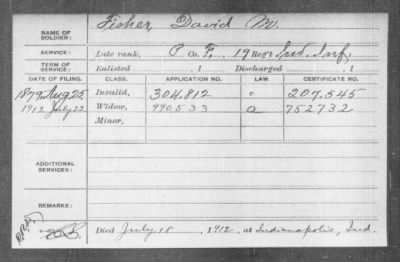 NAME OF SOLDIER: Fisher, David M.
SERVICE: Late rank, P. Co. F., 19 Reg't Ind. Inf.
TERM OF SERVICE: Enlisted , 1 Discharged , 1
DATE OF FILING. CLASS. APPLICATION NO. LAW. CERTIFICATE NO.
1879, Aug 25 Invalid, 304.812 c 207.545
1912 July 22 Widow, 990533 a 752732
Minor,
ADDITIONAL SERVICES:
REMARKS:
Died July 18, 1912, at Indianapolis, Ind.